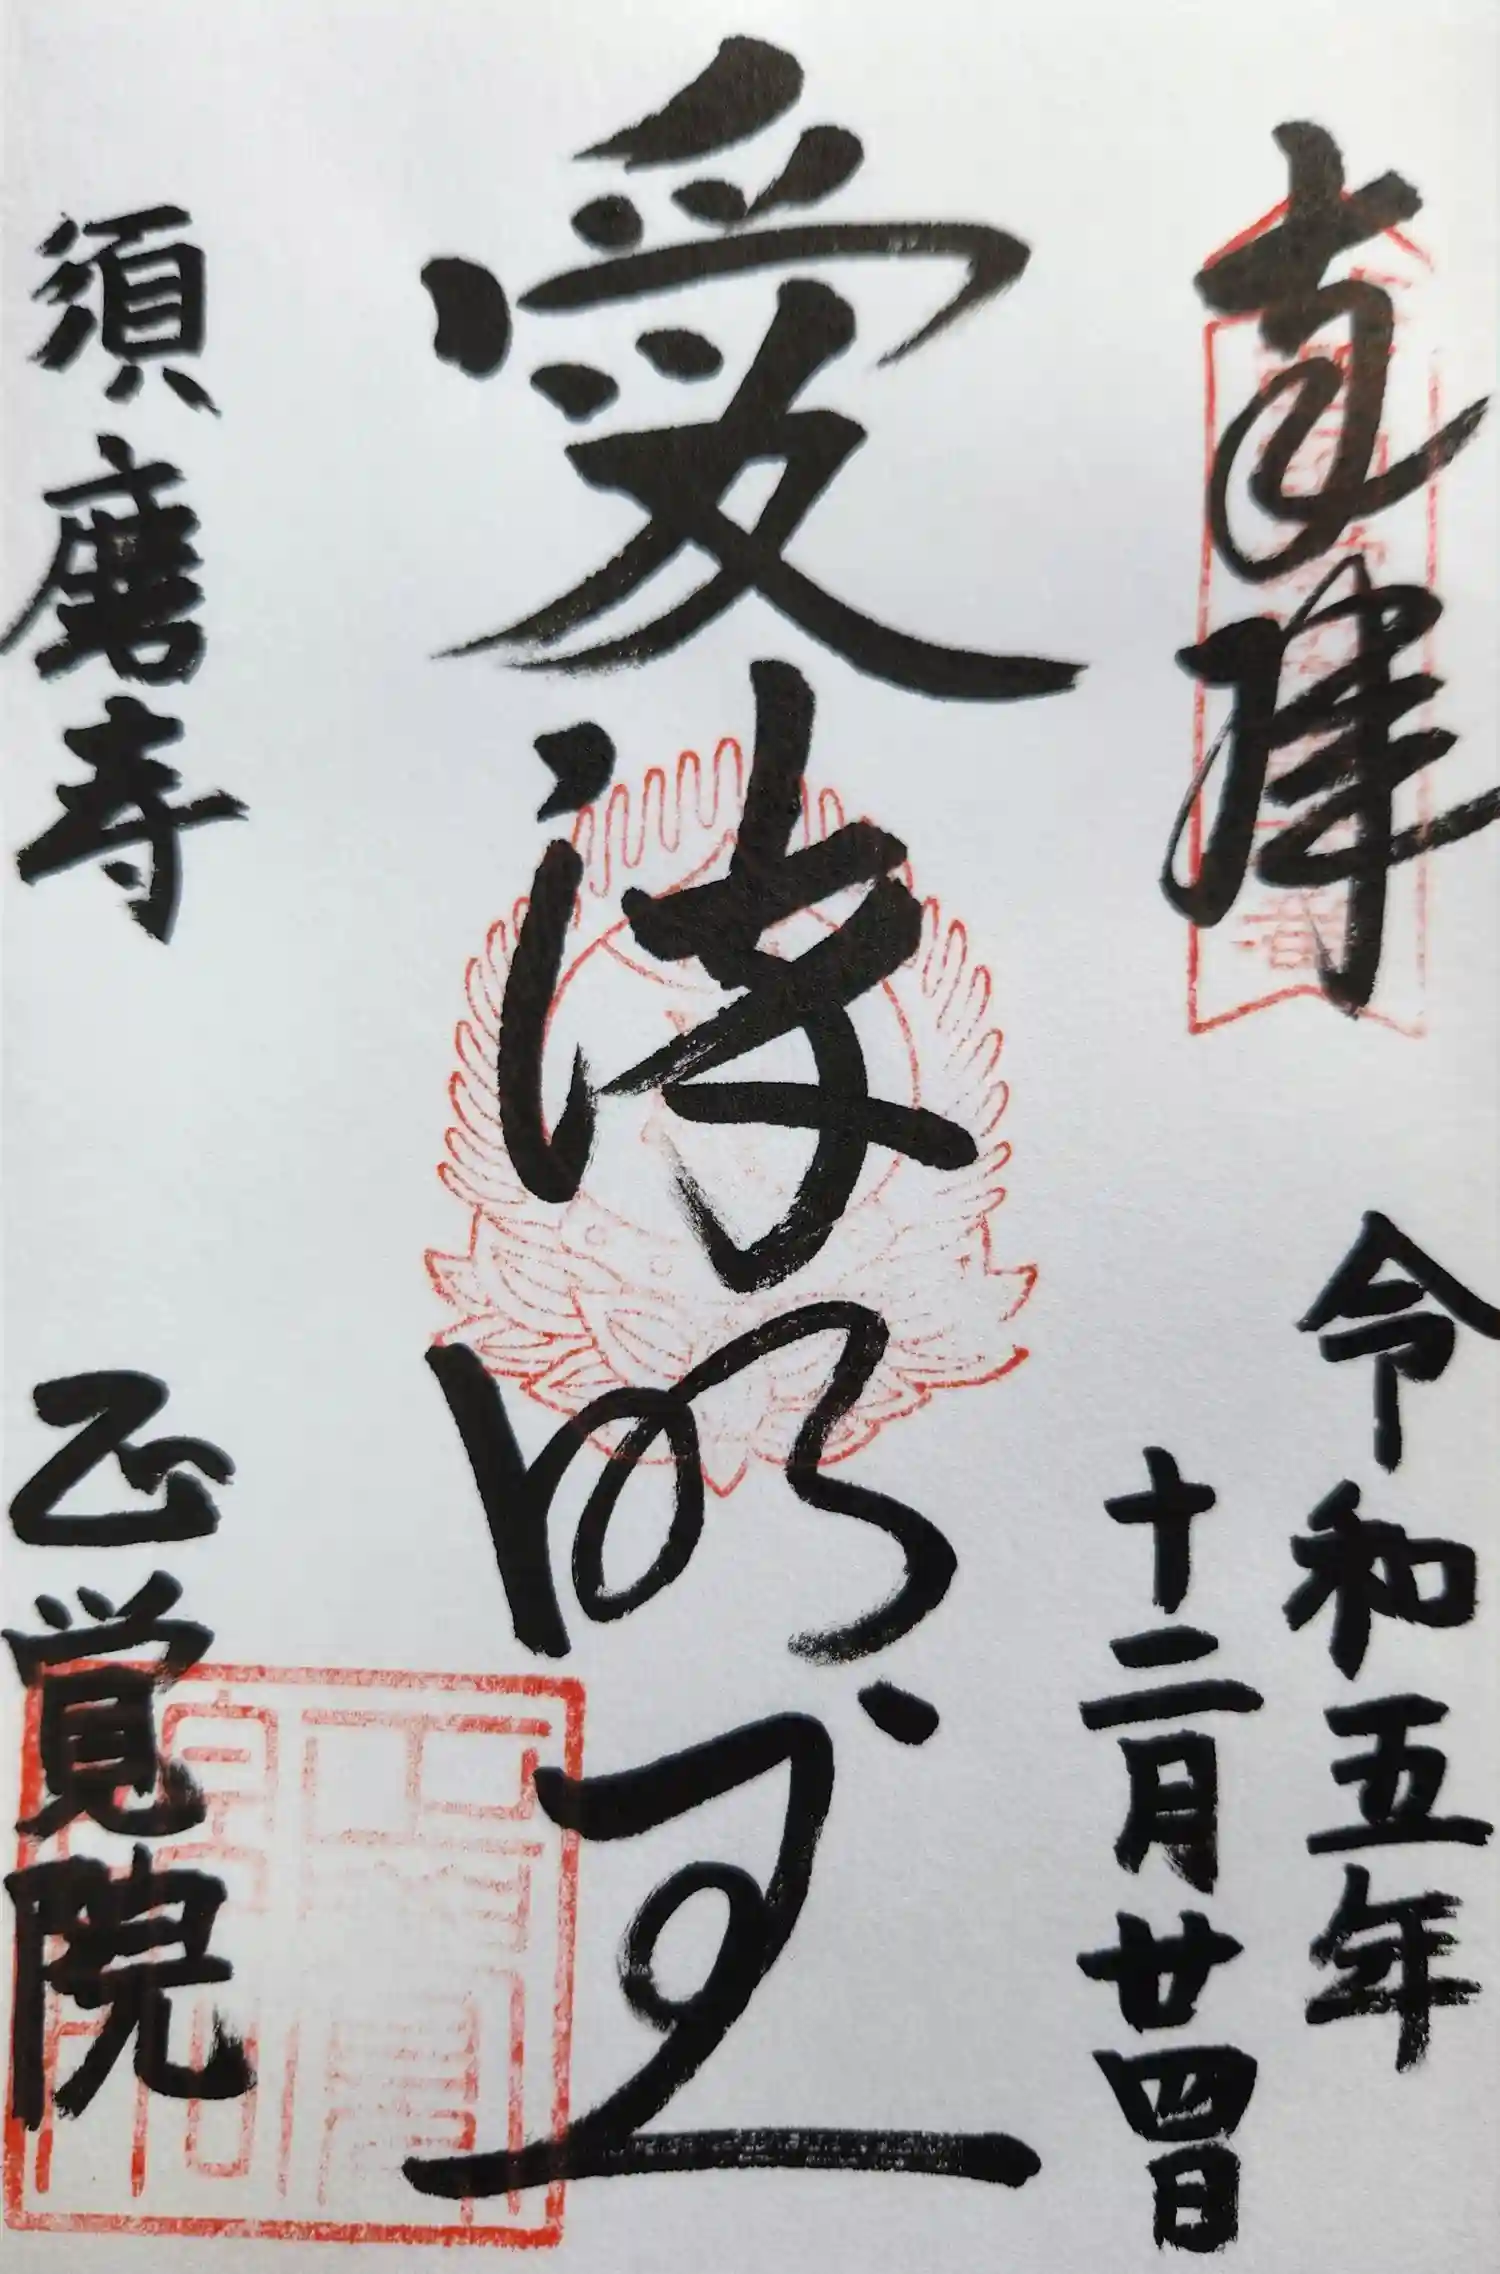 奉拝
令和五年
十二月廿四日
愛染明王
須磨寺
正覚院